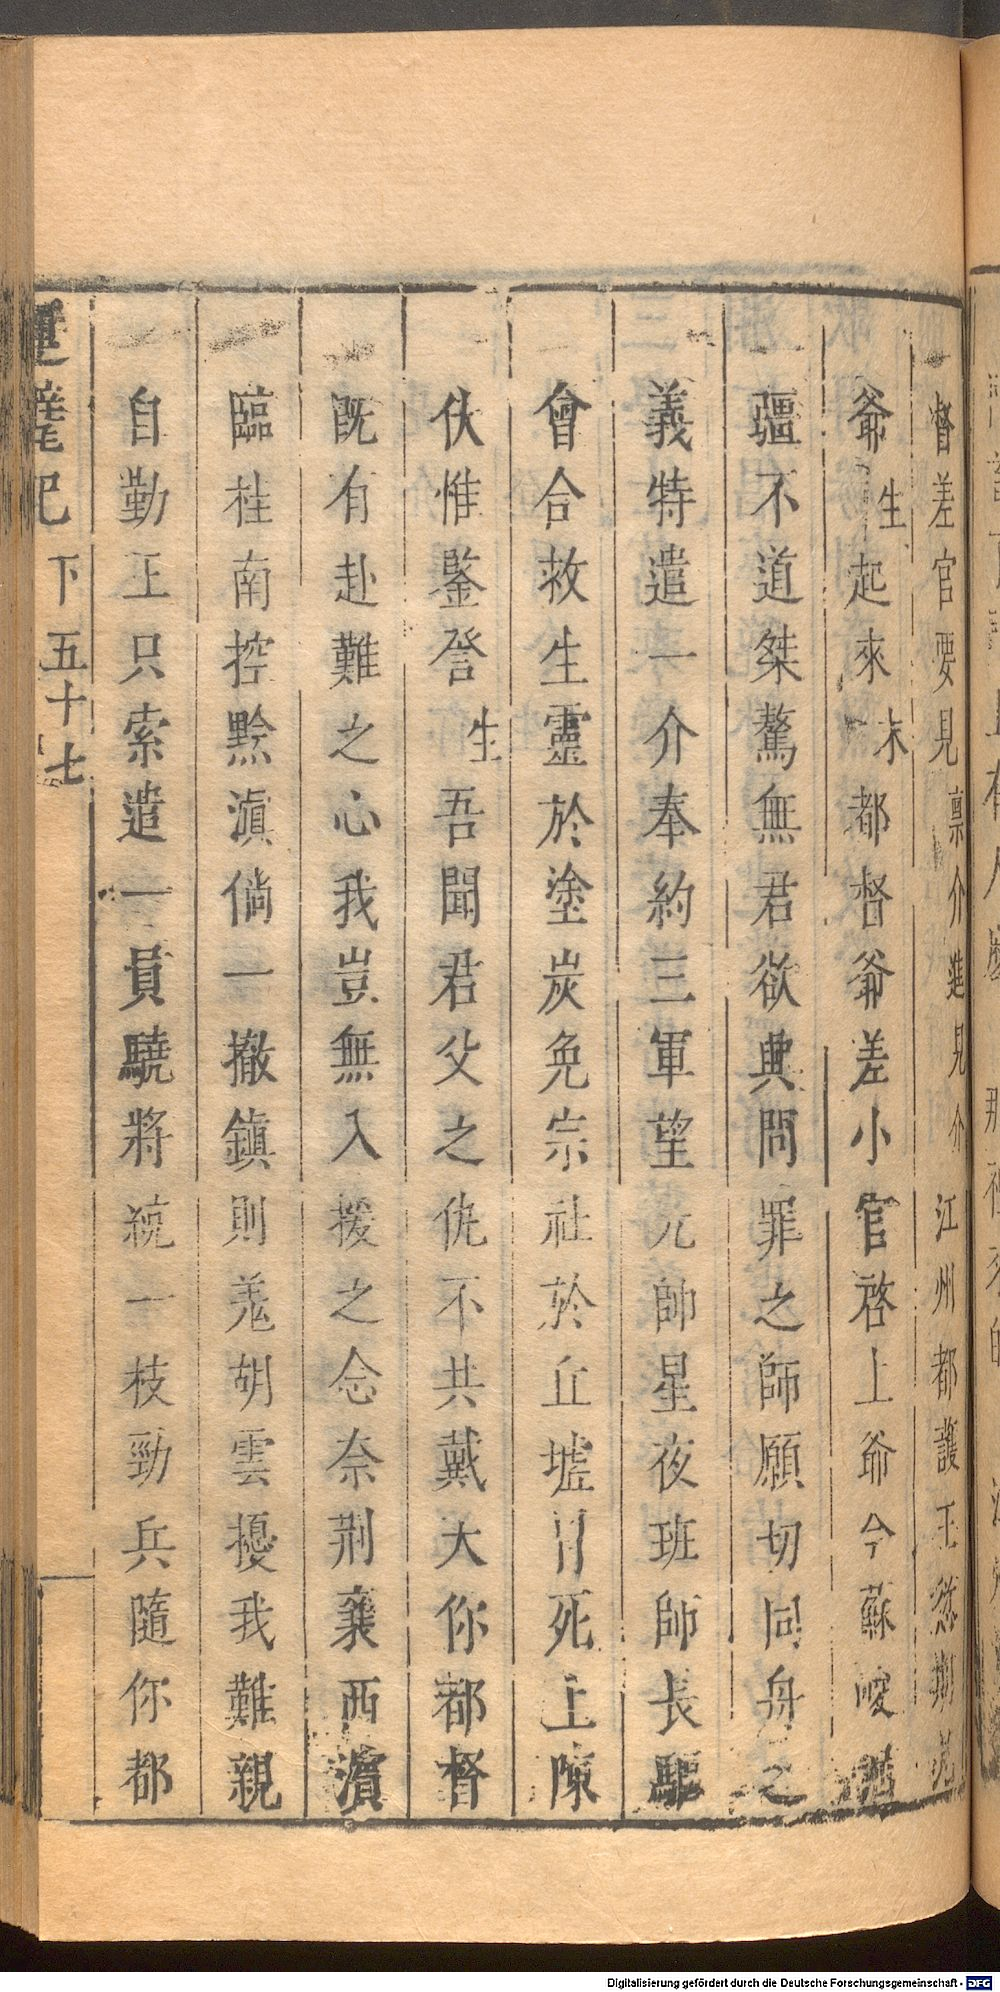 督差官要見稟介進見介江州都護王愆期叩
爺生起來末都督爺差小官啓上爺今蘇峻
疆不道桀驁無君欲興問罪之師願切同舟之
義特遣一介奉約三軍望元帥星夜班師長驅
會合救生靈於塗炭免宗社於丘墟冒死上陳
伏惟鑒詧生吾聞君父之仇不共戴天你都督
既有赴難之心我豈無入援之念奈荆襄西濱
臨桂南控黔滇倘一撤鎮則羗胡雲擾我難親
自勤王只索遣一員驍將統一枝勁兵隨你都
運甓記
下
五十七
Digitalisierung gefördert durch die Deutsche Forschungsgemeinschaft - DFG